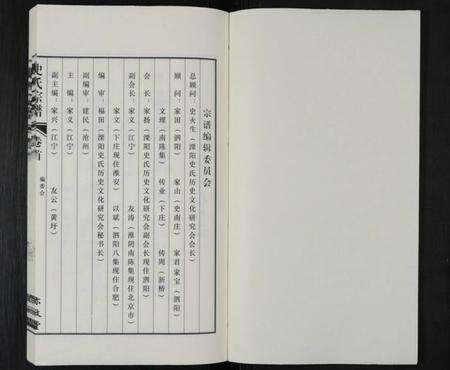 宗谱编辑委员会
总顾问：史火生（溧阳史氏历史文化研究会会长）
顾　问：家田（泗阳）　家山（史南庄）　家君　家宝（泗阳）
文理（南陈集）　传业（下庄）　传周（新桥）
会　长：家扬（溧阳史氏历史文化研究会副会长现住泗阳）
副会长：家义（江宁）　友涛（淮阴南陈集现住北京市）
家文（下庄现住淮安）　以斌（泗阳八集现住合肥）
编　审：福田（溧阳史氏历史文化研究会秘书长）
副编审：建民（沧州）
主　编：家义（江宁）
副主编：家兴（江宁）　友云（黄圩）
史氏宗谱
卷首
编委会